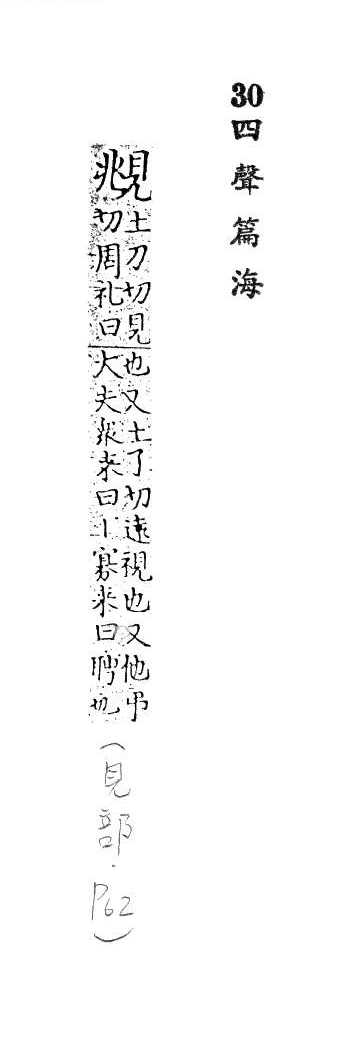 30四聲篇海
覜土刀切見也又土了切遠視也又他弔
切周礼曰大夫衆来曰丨寡来曰聘也
(見部.P62)